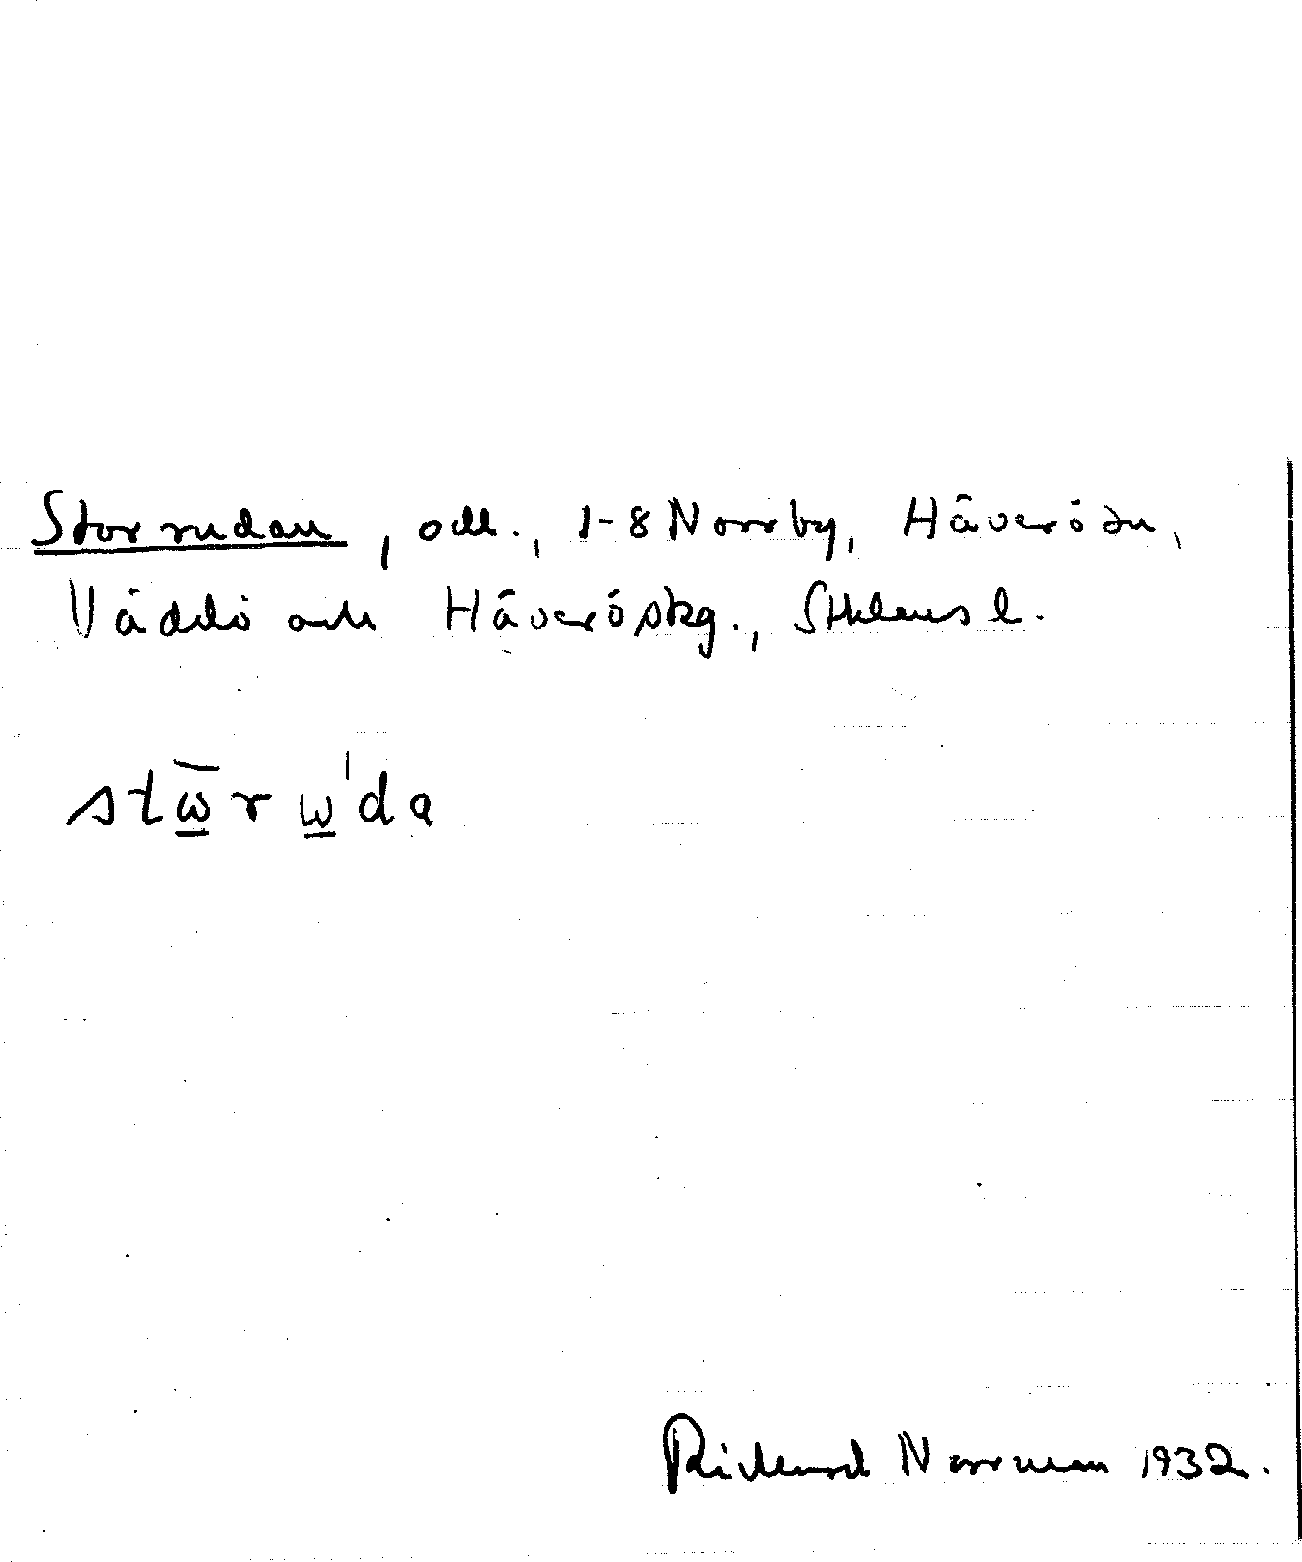 Storrudan, odl., 1-8 Norrby, Häverö sn,
Väddö och Häverö skg., Sthlms l.
stω̲̄r ω̲'da
Rickard Norrman 1932.